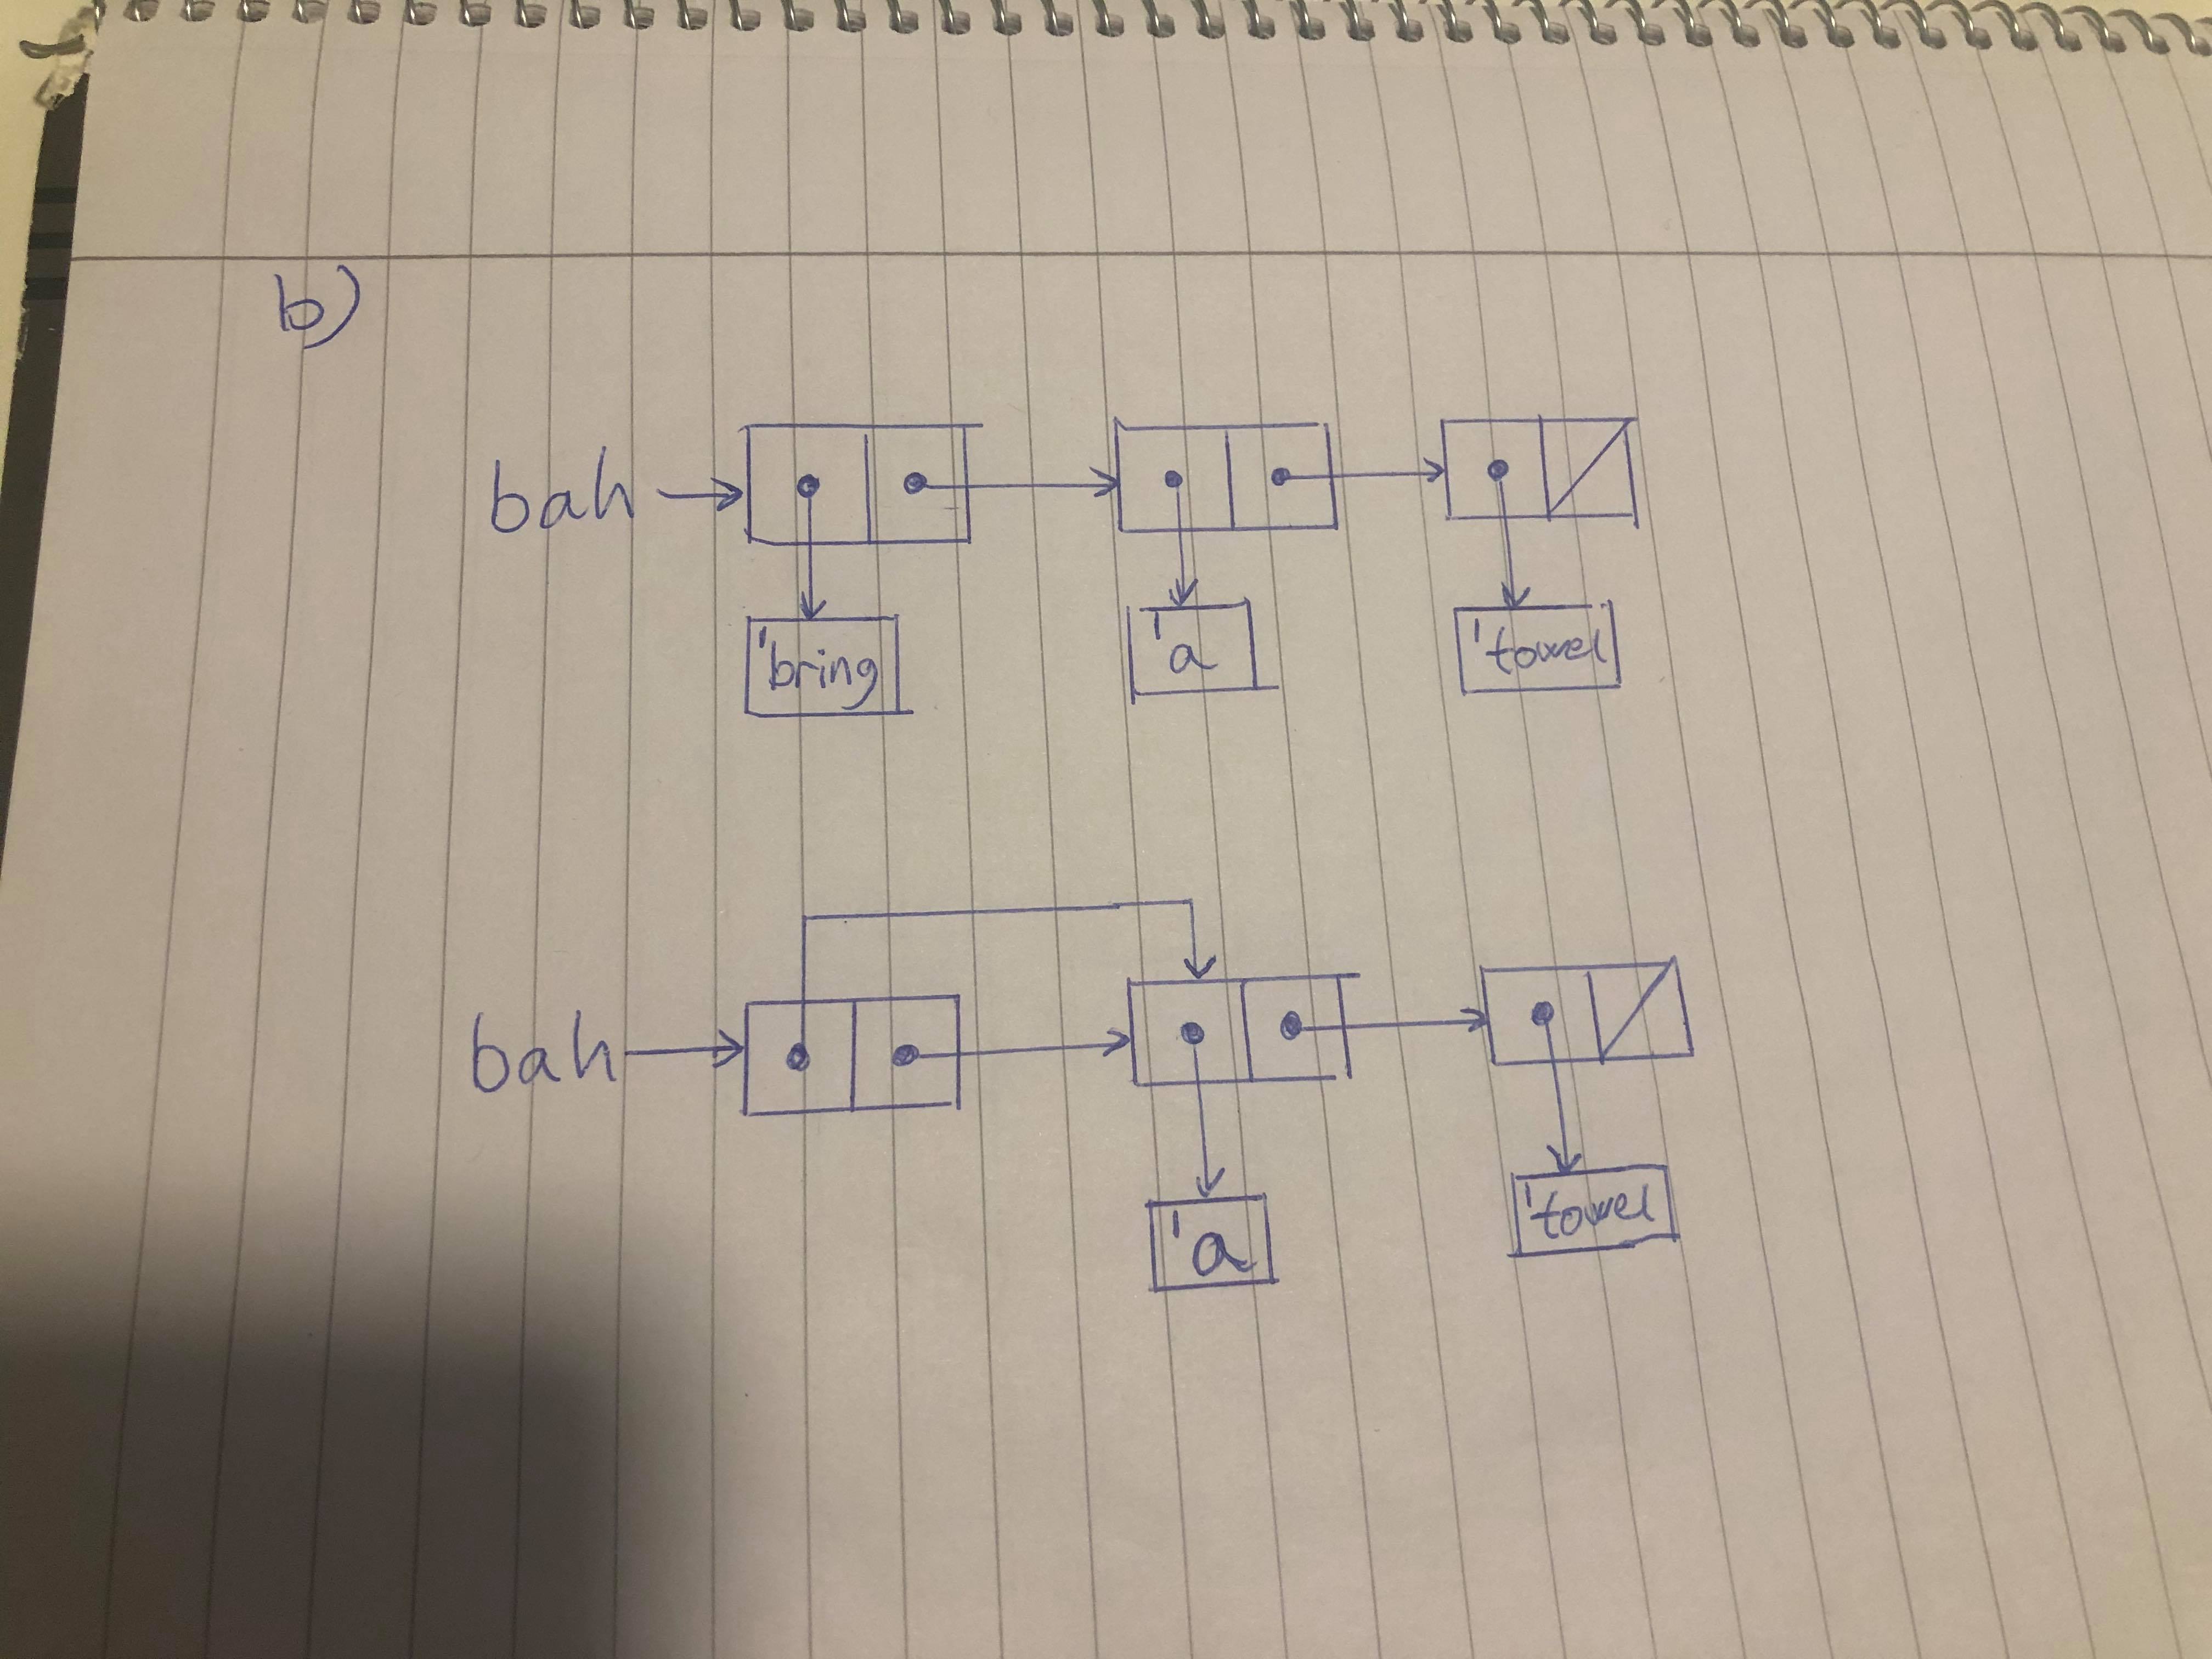 b)
bah
'bring 'a 'towel
bah
'a 'towel